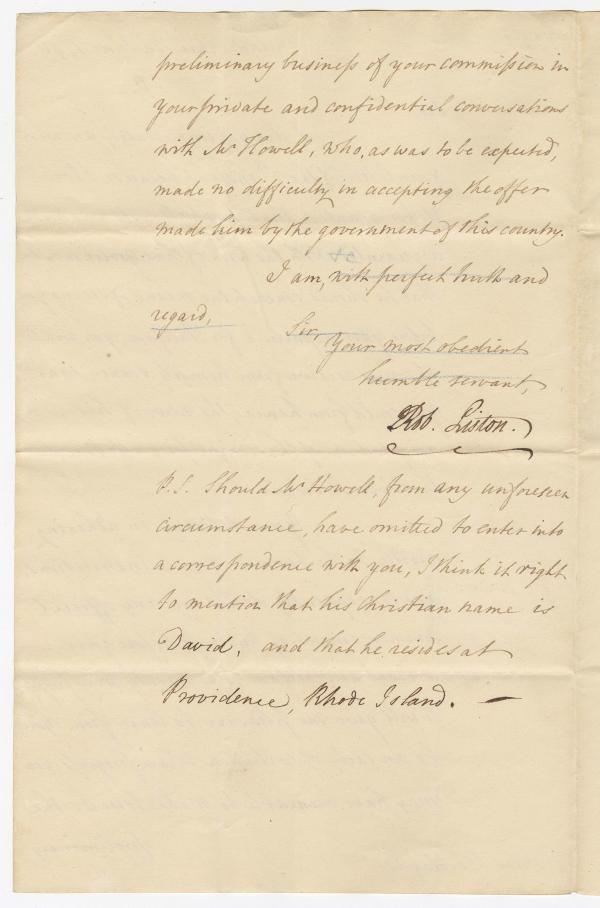 preliminary business of your commission in
your private and confidential conversations
with Mr Howell, who, as was to be expected,
made no difficulty in accepting the offer
made him by the government of this country.
I am, with perfect truth and
regard,
Sir,
Your most obedient
humble servant,
Rob. Liston.
P.S. Should Mr Howell, from any unforeseen
circumstance, have omitted to enter into
a correspondence with you, I think it right
to mention that his Christian name is
David, and that he resides at
Providence, Rhode Island. —